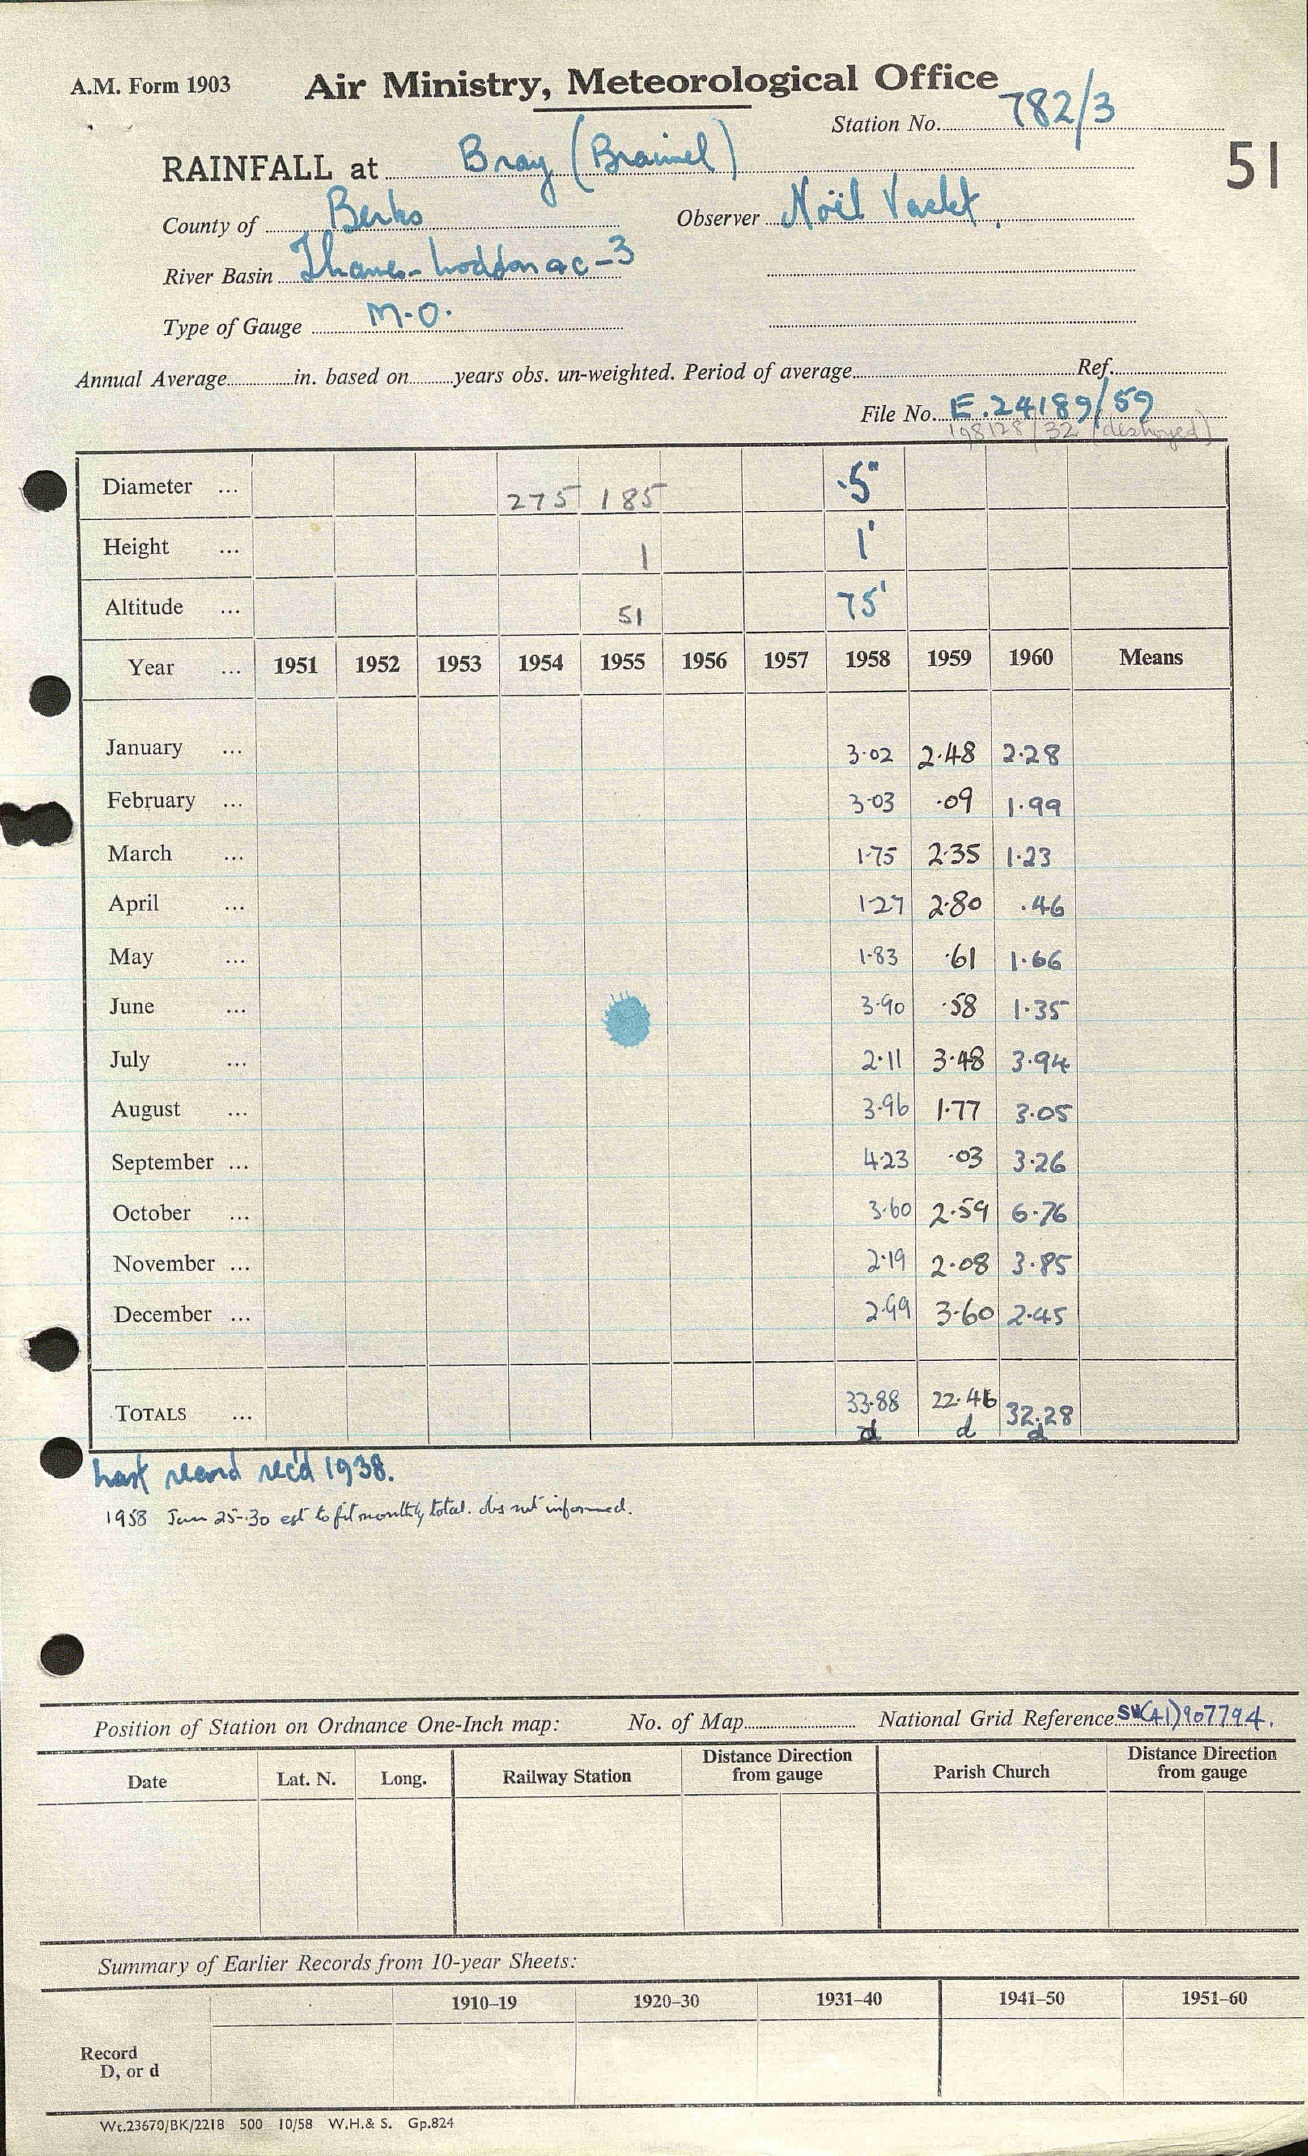 A.M. Form 1903 Air Ministry, Meteorological Office
Station No. 782/3
51
RAINFALL at Bray (Braimel)
County of Berks Observer Noël Vaslet.
River Basin Thames-Loddon ac-3
Type of Gauge M.O.
Annual Average in. based on years obs. un-weighted. Period of average Ref.
File No. E.24189/59
198128/32 (destroyed)
Diameter ... 275 185 .5"
Height ... 1 1'
Altitude ... 51 75'
Year ... 1951 1952 1953 1954 1955 1956 1957 1958 1959 1960 Means
January ... 3.02 2.48 2.28
February ... 3.03 .09 1.99
March ... 1.75 2.35 1.23
April ... 1.27 2.80 .46
May ... 1.83 .61 1.66
June ... 3.90 .58 1.35
July ... 2.11 3.48 3.94
August ... 3.96 1.77 3.05
September ... 4.23 .03 3.26
October ... 3.60 2.59 6.76
November ... 2.19 2.08 3.85
December ... 2.99 3.60 2.45
TOTALS ... 33.88 22.46 32.28
d d d
Last record rec'd 1938.
1958 Jan 25-30 est to fit monthly total. obs not informed.
Position of Station on Ordnance One-Inch map: No. of Map National Grid Reference SU(41)907794.
Date Lat. N. Long. Railway Station Distance Direction from gauge Parish Church Distance Direction from gauge
Summary of Earlier Records from 10-year Sheets:
1910–19 1920–30 1931–40 1941–50 1951–60
Record
D, or d
Wt.23670/BK/2218 500 10/58 W.H.& S. Gp.824